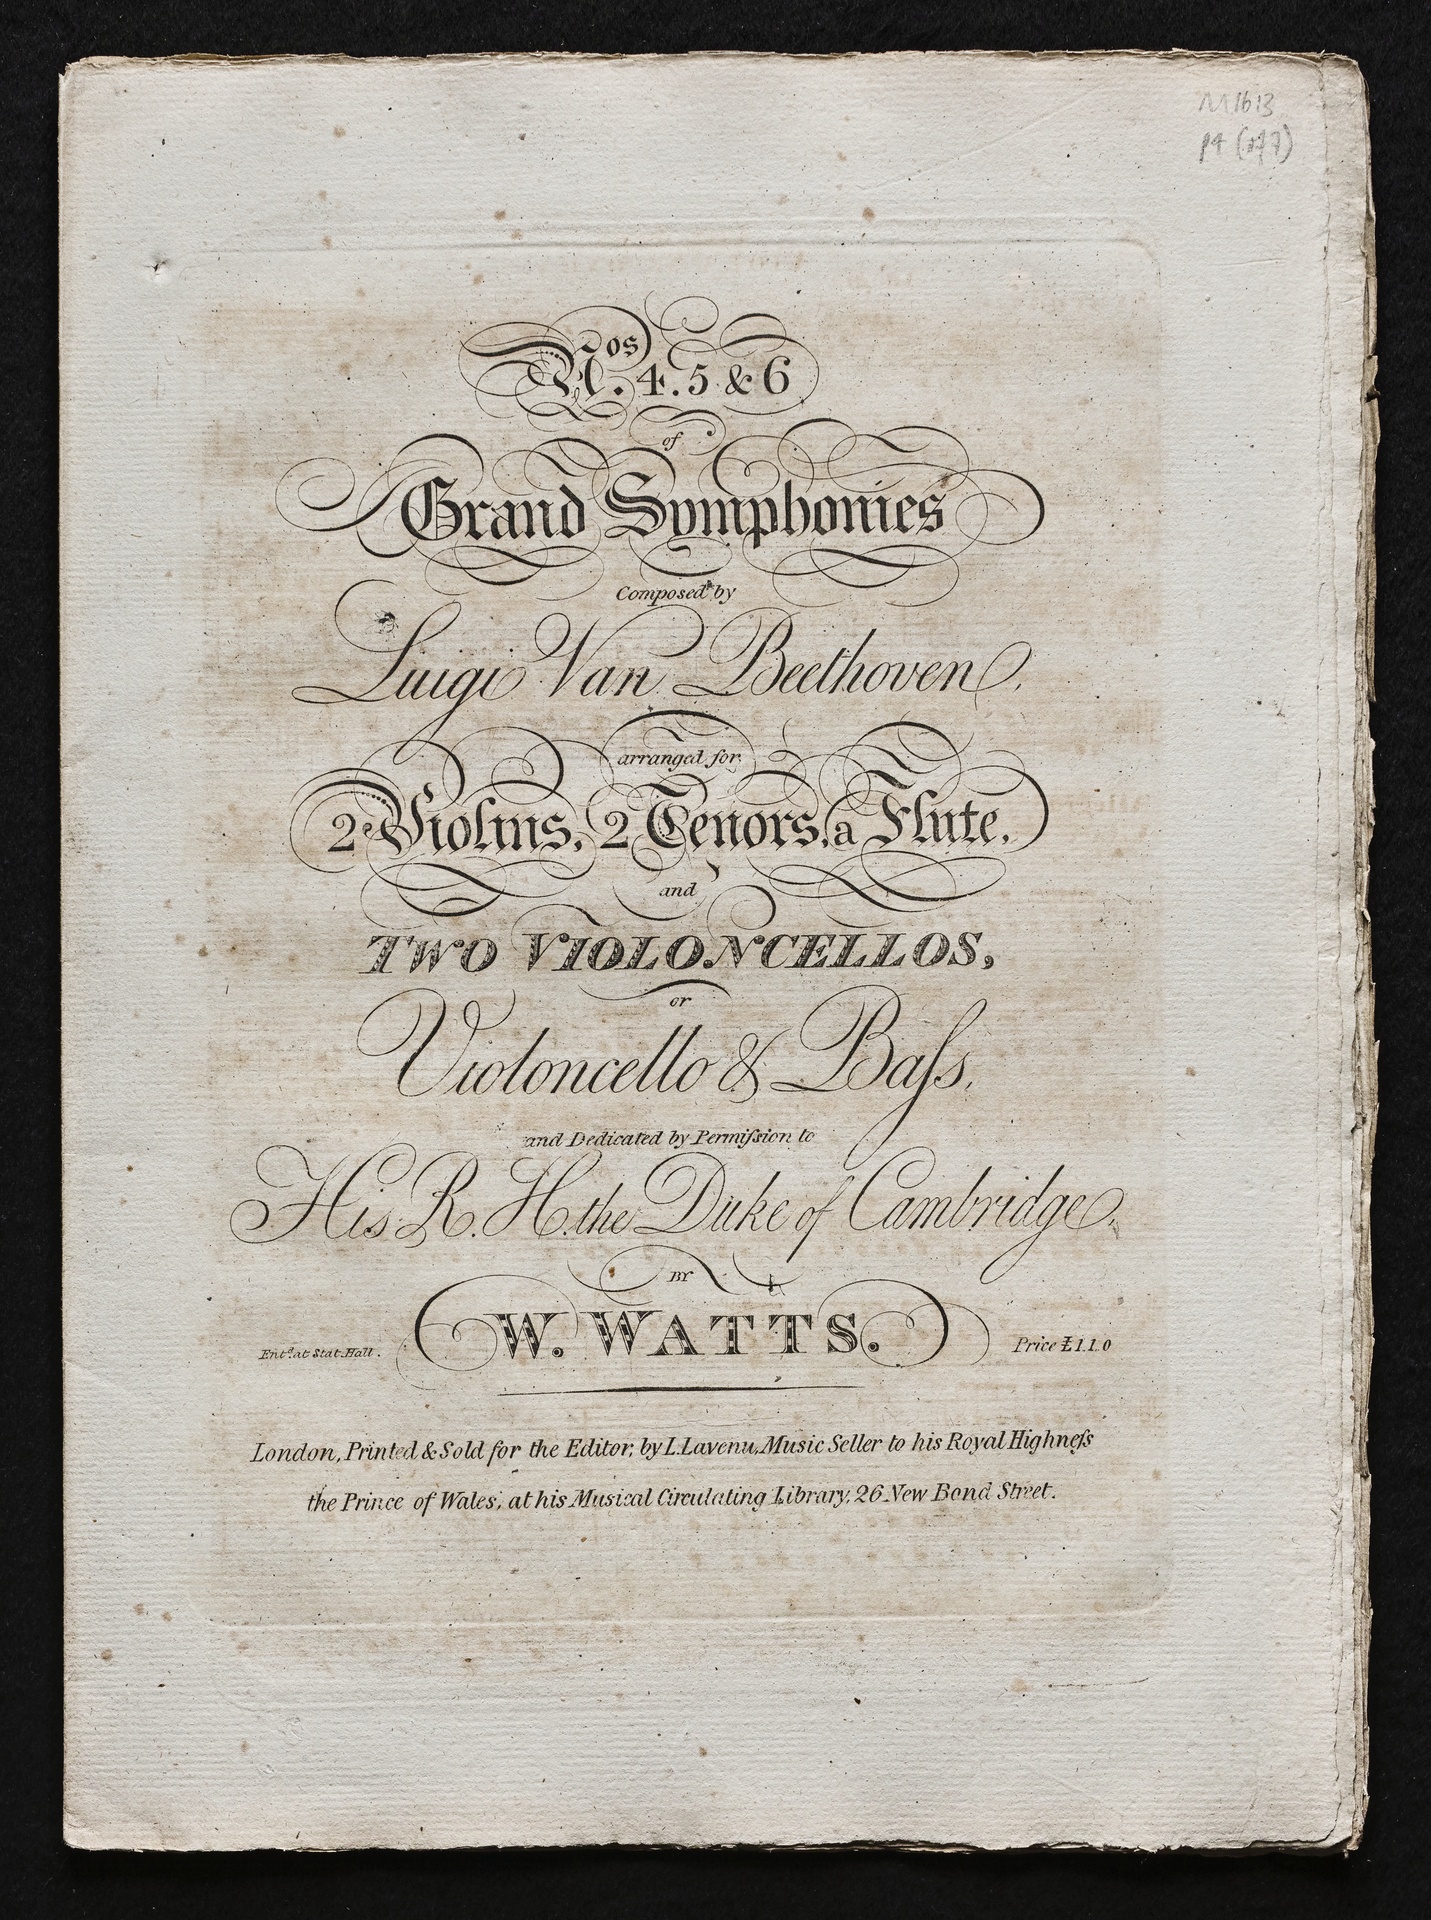 M1613
Nos. 4. 5 & 6
of
Grand Symphonies
Composed by
Luigi Van Beethoven,
arranged for
2 Violins, 2 Tenors, a Flute,
and
TWO VIOLONCELLOS,
or
Violoncello & Baſs,
and Dedicated by Permiſsion to
His R. H. the Duke of Cambridge,
BY
W. WATTS.
Entd. at Stat. Hall.
Price £1.1.0
London, Printed & Sold for the Editor, by L. Lavenu, Music Seller to his Royal Highneſs
the Prince of Wales, at his Musical Circulating Library, 26 New Bond Street.